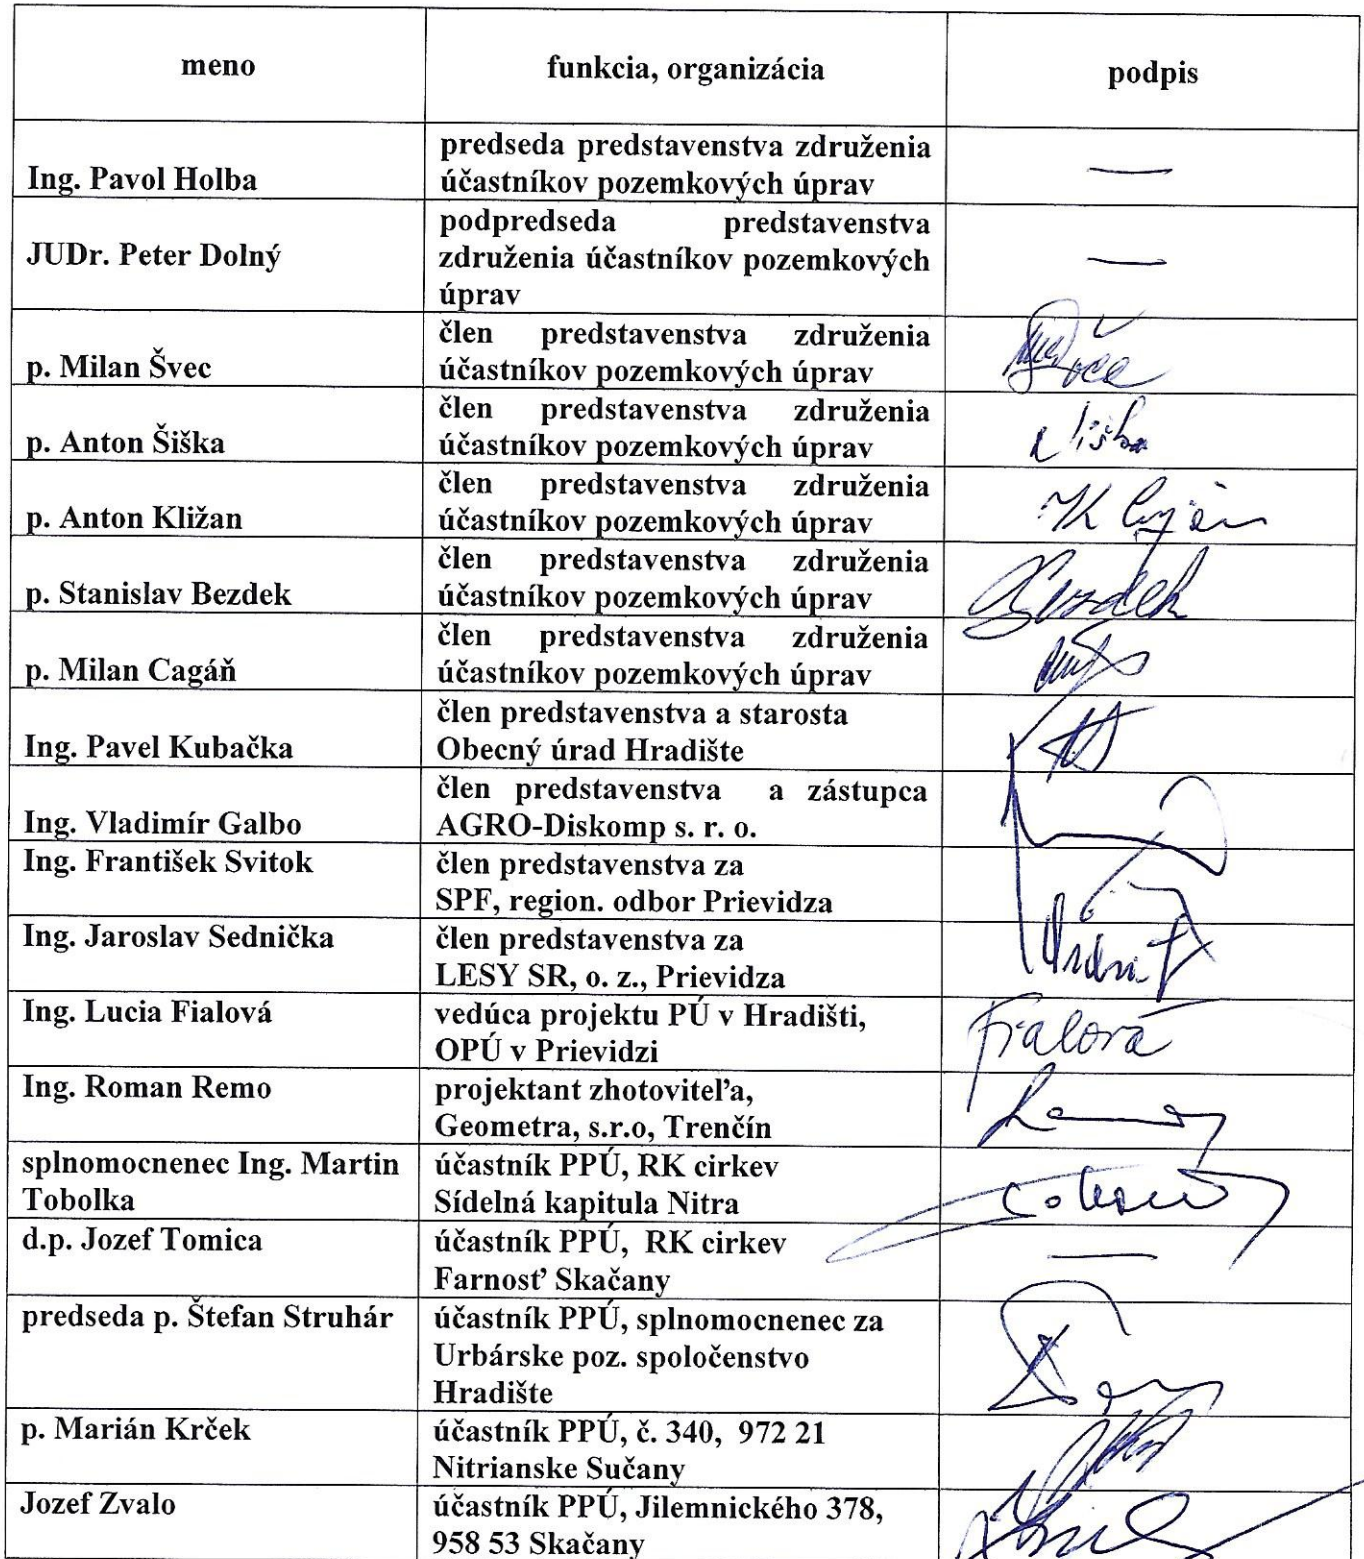 meno
funkcia, organizácia
podpis
Ing. Pavol Holba
predseda predstavenstva združenia
účastníkov pozemkových úprav
—
JUDr. Peter Dolný
podpredseda predstavenstva
združenia účastníkov pozemkových
úprav
—
p. Milan Švec
člen predstavenstva združenia
účastníkov pozemkových úprav
p. Anton Šiška
člen predstavenstva združenia
účastníkov pozemkových úprav
p. Anton Kližan
člen predstavenstva združenia
účastníkov pozemkových úprav
p. Stanislav Bezdek
člen predstavenstva združenia
účastníkov pozemkových úprav
Bezdek
p. Milan Cagáň
člen predstavenstva združenia
účastníkov pozemkových úprav
Ing. Pavel Kubačka
člen predstavenstva a starosta
Obecný úrad Hradište
Ing. Vladimír Galbo
člen predstavenstva a zástupca
AGRO-Diskomp s. r. o.
Ing. František Svitok
člen predstavenstva za
SPF, region. odbor Prievidza
Ing. Jaroslav Sednička
člen predstavenstva za
LESY SR, o. z., Prievidza
Ing. Lucia Fialová
vedúca projektu PÚ v Hradišti,
OPÚ v Prievidzi
Fialová
Ing. Roman Remo
projektant zhotoviteľa,
Geometra, s.r.o, Trenčín
splnomocnenec Ing. Martin
Tobolka
účastník PPÚ, RK cirkev
Sídelná kapitula Nitra
d.p. Jozef Tomica
účastník PPÚ, RK cirkev
Farnosť Skačany
—
predseda p. Štefan Struhár
účastník PPÚ, splnomocnenec za
Urbárske poz. spoločenstvo
Hradište
p. Marián Krček
účastník PPÚ, č. 340, 972 21
Nitrianske Sučany
Jozef Zvalo
účastník PPÚ, Jilemnického 378,
958 53 Skačany